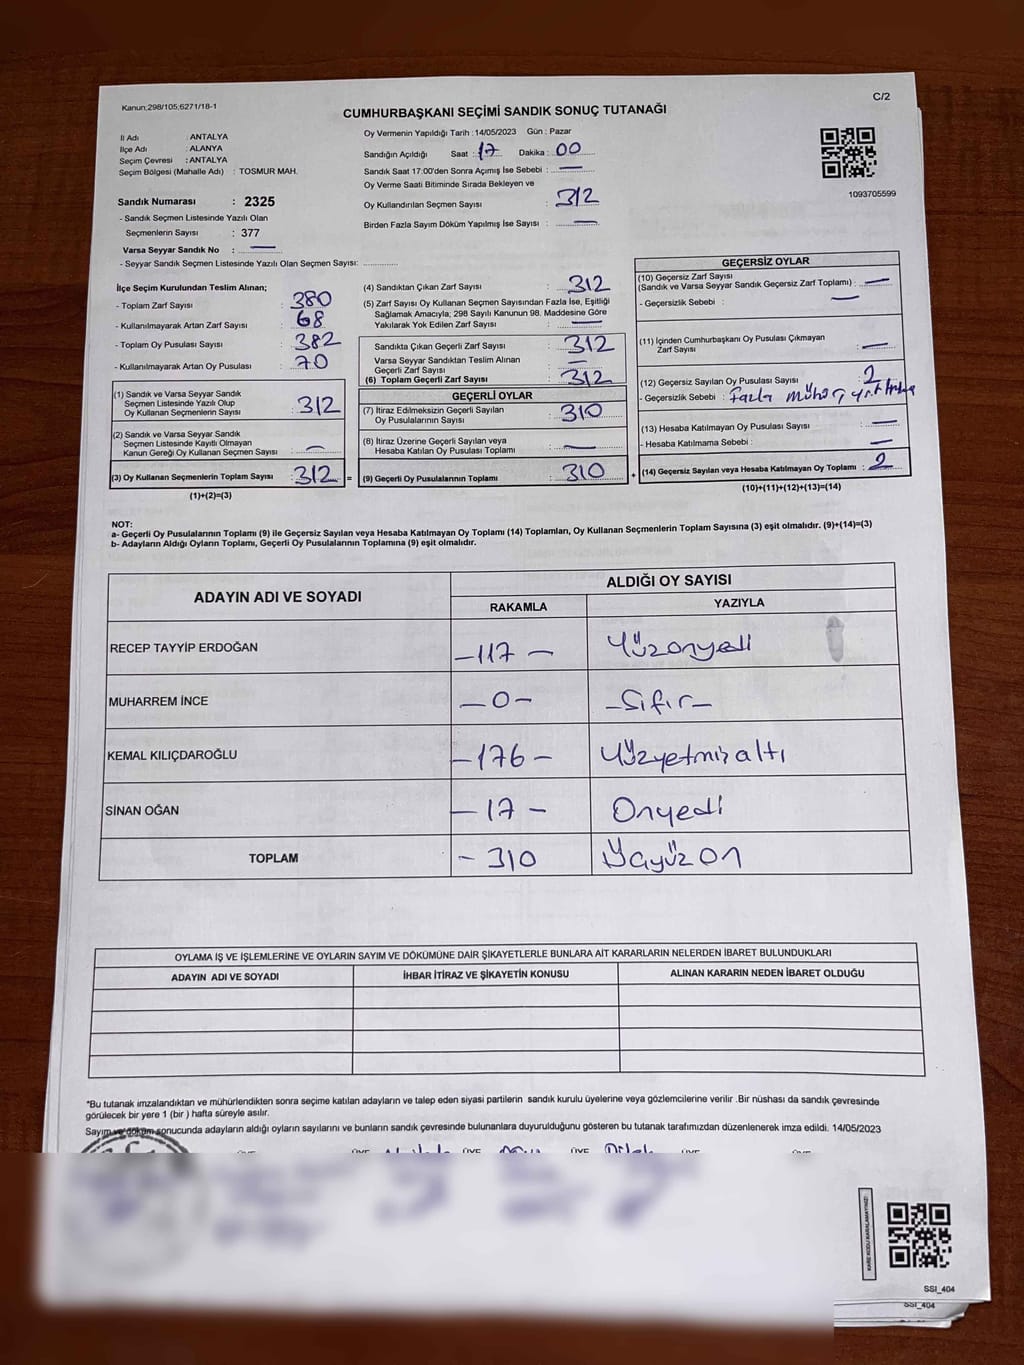 Kanun;298/105;6271/18-1
C/2
CUMHURBAŞKANI SEÇİMİ SANDIK SONUÇ TUTANAĞI
İl Adı : ANTALYA
İlçe Adı : ALANYA
Seçim Çevresi : ANTALYA
Seçim Bölgesi (Mahalle Adı) : TOSMUR MAH.
Sandık Numarası : 2325
- Sandık Seçmen Listesinde Yazılı Olan
Seçmenlerin Sayısı : 377
Varsa Seyyar Sandık No : —
- Seyyar Sandık Seçmen Listesinde Yazılı Olan Seçmen Sayısı: ..............
Oy Vermenin Yapıldığı Tarih : 14/05/2023 Gün : Pazar
Sandığın Açıldığı Saat : 17 Dakika : 00
Sandık Saat 17:00'den Sonra Açımış İse Sebebi : —
Oy Verme Saati Bitiminde Sırada Bekleyen ve
Oy Kullandırılan Seçmen Sayısı : 312
Birden Fazla Sayım Döküm Yapılmış İse Sayısı : —
1093705599
İlçe Seçim Kurulundan Teslim Alınan;
- Toplam Zarf Sayısı : 380
- Kullanılmayarak Artan Zarf Sayısı : 68
- Toplam Oy Pusulası Sayısı : 382
- Kullanılmayarak Artan Oy Pusulası : 70
(1) Sandık ve Varsa Seyyar Sandık
Seçmen Listesinde Yazılı Olup
Oy Kullanan Seçmenlerin Sayısı : 312
(2) Sandık ve Varsa Seyyar Sandık
Seçmen Listesinde Kayıtlı Olmayan
Kanun Gereği Oy Kullanan Seçmen Sayısı : —
(3) Oy Kullanan Seçmenlerin Toplam Sayısı : 312 =
(1)+(2)=(3)
(4) Sandıktan Çıkan Zarf Sayısı : 312
(5) Zarf Sayısı Oy Kullanan Seçmen Sayısından Fazla İse, Eşitliği
Sağlamak Amacıyla; 298 Sayılı Kanunun 98. Maddesine Göre
Yakılarak Yok Edilen Zarf Sayısı : —
Sandıkta Çıkan Geçerli Zarf Sayısı : 312
Varsa Seyyar Sandıktan Teslim Alınan
Geçerli Zarf Sayısı : —
(6) Toplam Geçerli Zarf Sayısı : 312
GEÇERLİ OYLAR
(7) İtiraz Edilmeksizin Geçerli Sayılan
Oy Pusulalarının Sayısı : 310
(8) İtiraz Üzerine Geçerli Sayılan veya
Hesaba Katılan Oy Pusulası Toplamı : —
(9) Geçerli Oy Pusulalarının Toplamı : 310 +
GEÇERSİZ OYLAR
(10) Geçersiz Zarf Sayısı
(Sandık ve Varsa Seyyar Sandık Geçersiz Zarf Toplamı) : —
- Geçersizlik Sebebi : —
(11) İçinden Cumhurbaşkanı Oy Pusulası Çıkmayan
Zarf Sayısı : —
(12) Geçersiz Sayılan Oy Pusulası Sayısı : 2
- Geçersizlik Sebebi : fazla mühür
(13) Hesaba Katılmayan Oy Pusulası Sayısı : —
- Hesaba Katılmama Sebebi : —
(14) Geçersiz Sayılan veya Hesaba Katılmayan Oy Toplamı : 2
(10)+(11)+(12)+(13)=(14)
NOT:
a- Geçerli Oy Pusulalarının Toplamı (9) ile Geçersiz Sayılan veya Hesaba Katılmayan Oy Toplamı (14) Toplamları, Oy Kullanan Seçmenlerin Toplam Sayısına (3) eşit olmalıdır. (9)+(14)=(3)
b- Adayların Aldığı Oyların Toplamı, Geçerli Oy Pusulalarının Toplamına (9) eşit olmalıdır.
ADAYIN ADI VE SOYADI ALDIĞI OY SAYISI
RAKAMLA YAZIYLA
RECEP TAYYİP ERDOĞAN –117– Yüzonyedi
MUHARREM İNCE –0– –Sıfır–
KEMAL KILIÇDAROĞLU –176– Yüzyetmişaltı
SİNAN OĞAN –17– Onyedi
TOPLAM –310
OYLAMA İŞ VE İŞLEMLERİNE VE OYLARIN SAYIM VE DÖKÜMÜNE DAİR ŞİKAYETLERLE BUNLARA AİT KARARLARIN NELERDEN İBARET BULUNDUKLARI
ADAYIN ADI VE SOYADI İHBAR İTİRAZ VE ŞİKAYETİN KONUSU ALINAN KARARIN NEDEN İBARET OLDUĞU
*Bu tutanak imzalandıktan ve mühürlendikten sonra seçime katılan adayların ve talep eden siyasi partilerin sandık kurulu üyelerine veya gözlemcilerine verilir .Bir nüshası da sandık çevresinde
görülecek bir yere 1 (bir ) hafta süreyle asılır.
Sayım ve döküm sonucunda adayların aldığı oyların sayılarını ve bunların sandık çevresinde bulunanlara duyurulduğunu gösteren bu tutanak tarafımızdan düzenlenerek imza edildi. 14/05/2023
SSI_404
SSI_404